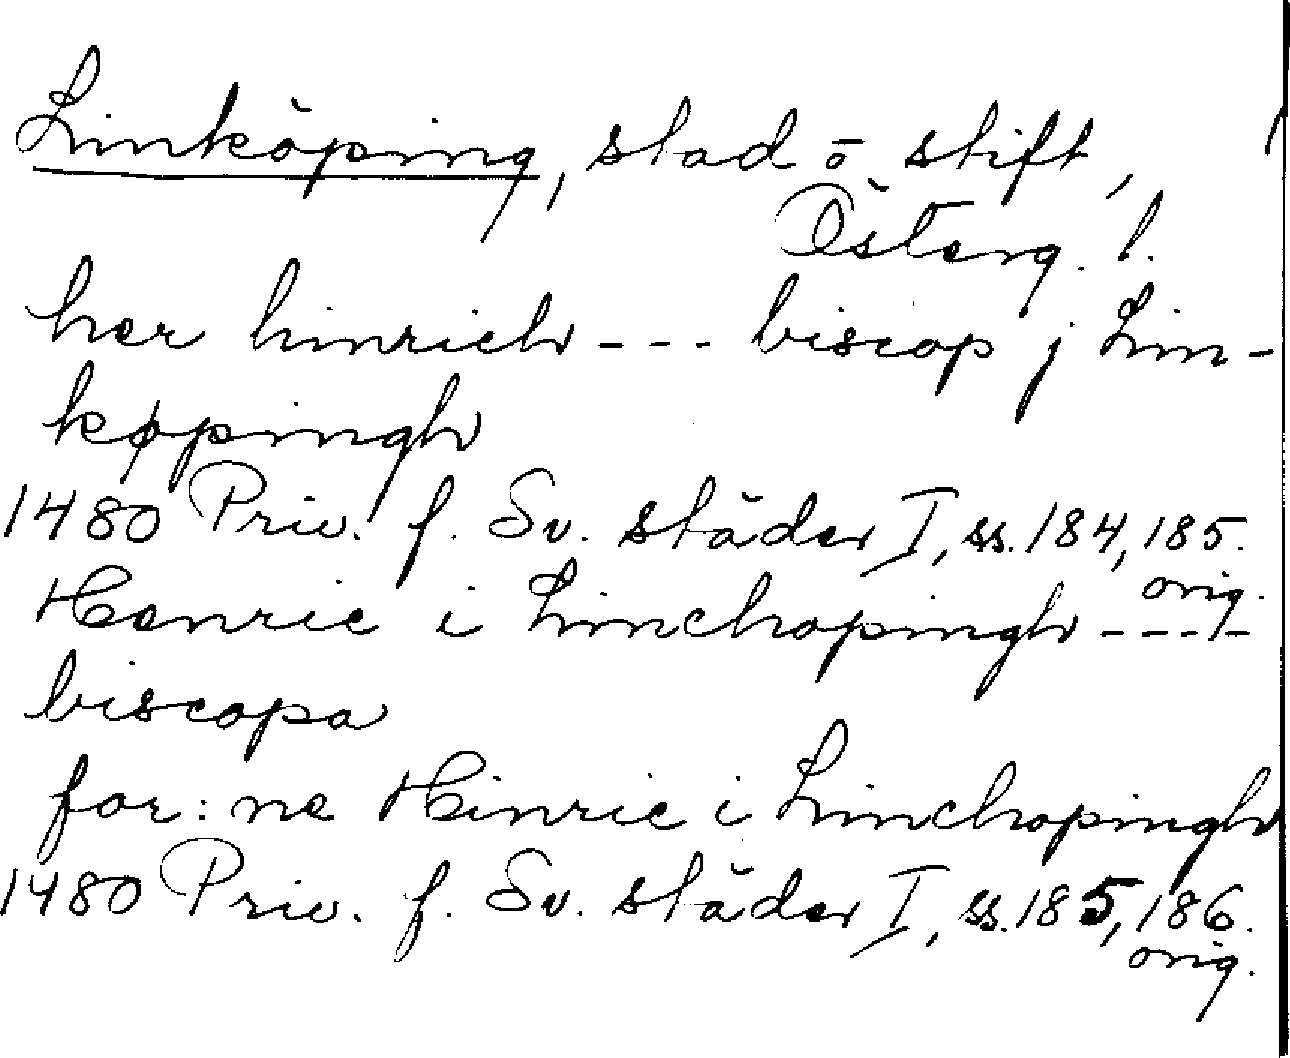 Linköping, stad o stift,
Österg. l.
her hinrich --- biscop j Lin-
køpingh
1480 Priv. f. Sv. städer I, ss. 184, 185.
orig.
Henric i Linchopingh ----
biscopa
for: ne Hinric i Linchopingh
1480 Priv. f. Sv. städer I, ss. 185, 186.
orig.